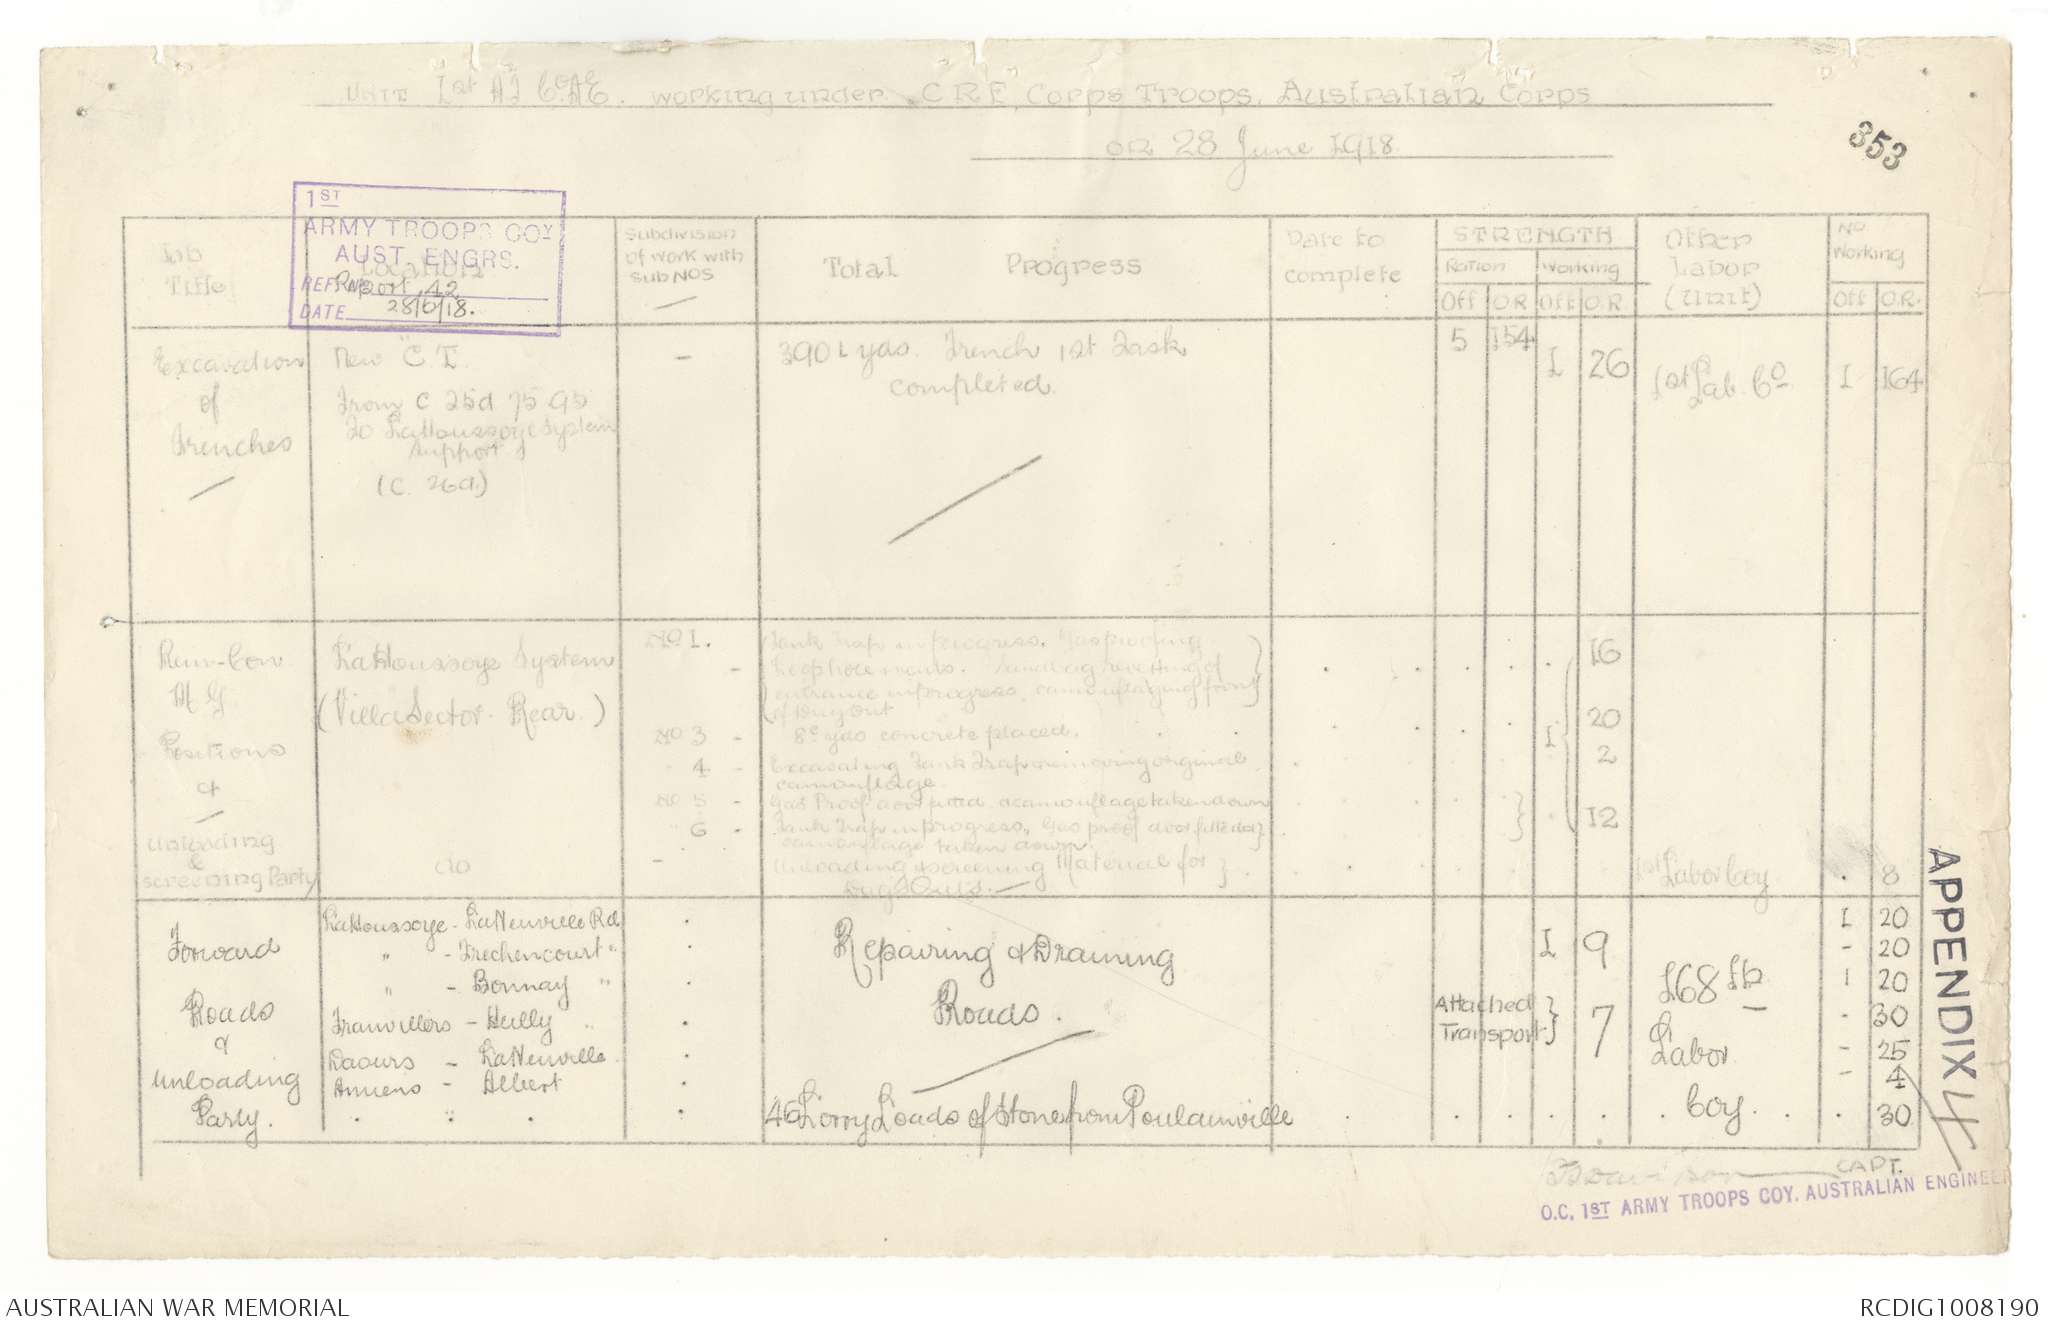 UNIT 1st A.T. Co. A.E. working under C R E, Corps Troops, Australian Corps
on 28 June 1918
353
1ST
ARMY TROOPS COY
AUST. ENGRS.
REF. No Report 42
DATE 28/6/18.
Job Title
Location
Subdivision of work with Sub NOS
Total Progress
Date to complete
STRENGTH
Ration
Working
Off O.R Off O.R.
Other Labor (Unit)
No Working
Off O.R.
Excavation of Trenches
New "C T.
From C 25d 75.95
To LaHoussoye System
Support
(C. 26a.)
-
390 L yds. Trench 1st Task
completed.
5 154 1 26
1st Lab. Co
1 164
Rein-Con
M G
Positions
&
Unloading
&
Screening Party
LaHoussoye System
(Villa Sector. Rear.)
No 1. - Tank Trap in progress. Gasproofing
Loophole mants. Sandbag revetting of
entrance in progress, camouflaging front
of Dug Out
16
No 3 - 8c yds concrete placed.
1 20
4 - Excavating Tank Trap removing original
camouflage.
2
No 5 - Gas Proof door fitted & camouflage taken down
12
" 6 - Tank Trap in progress, Gas proof door fitted &
camouflage taken down.
do - Unloading & screening Material for
Dug Outs.
1st Labor Coy . 8
Forward
Roads
&
Unloading
Party.
LaHoussoye - LaNeuville Rd
" - Frechencourt "
" - Bonnay "
Franvillers - Heilly "
Daours - LaNeuville
Amiens - Albert
Repairing & Draining
Roads.
46 Lorry Loads of Stone from Poulainville
1 9
Attached
Transport
7
168th
Labor
Coy.
1 20
- 20
1 20
- 30
- 25
- 4
. 30
APPENDIX 4
CAPT.
O.C. 1ST ARMY TROOPS COY. AUSTRALIAN ENGINEER
AUSTRALIAN WAR MEMORIAL
RCDIG1008190